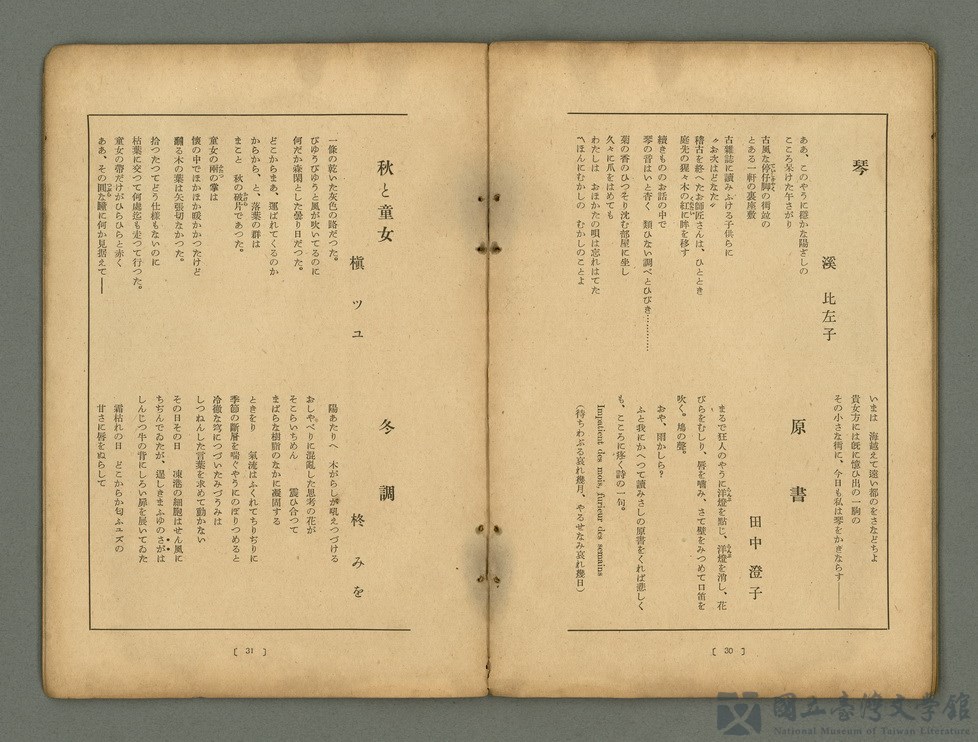 琴
溪 比左子
ああ、このやうに穩かな陽ざしの
こころ呆けた午さがり
古風な停仔脚の街竝の
とある一軒の裏座敷
古雜誌に讀みふける子供らに
〝お次はどなた〟
稽古を終へたお師匠さんは、ひととき
庭先の猩々木の紅に眸を移す
續きもののお話の中で
琴の音はいと青く 類ひない調べとひびき…………
菊の香のひつそり沈む部屋に坐し
久々に爪をはめても
わたしは おほかたの唄は忘れはてた
〝ほんにむかしの むかしのことよ
いまは 海越えて遠い都のをさなどちよ
貴女方には旣に憶ひ出の一駒の
その小さな街に、今日も私は琴をかきならす――
原書
田中 澄子
まるで狂人のやうに洋燈を點じ、洋燈を消し、花
びらをむしり、唇を嚙み、さて壁をみつめて口笛を
吹く。鳩の聲。
おや、雨かしら?
ふと我にかへつて讀みさしの原書をくれば悲しく
も、こころに疼く詩の一句。
Impatient des mois, furieur des semains
(待ちわぶる哀れ幾月、やるせなみ哀れ幾日)
[ 30 ]
秋と童女
槇 ツユ
一條の乾いた灰色の路だつた。
びゆうびゆうと風が吹いてるのに
何だか森閑とした曇り日だつた。
どこからまあ、運ばれてくるのか
からから、と、落葉の群は
まこと 秋の破片であつた。
童女の兩の掌は
懷の中でほかほか暖かかつたけど
飜る木の葉は矢張切なかつた。
拾つたつてどう仕樣もないのに
枯葉に交つて何處迄も走つて行つた。
童女の帶だけがひらひらと赤く
ああ、その圓な瞳に何か見据えて――
冬調
柊 みを
陽あたりへ 木がらしが吼えつづける
おしやべりに混亂した思考の花が
そこらいちめん 震ひ合つて
まばらな樹脂のなかに凝固する
ときをり 氣流はふくれてちりぢりに
季節の斷層を喘ぐやうにのぼりつめると
冷徹な穹につづいたみづうみは
しつねんした言葉を求めて動かない
その日その日 凍港の細胞はせん風に
ちぢんでゐたが、逞しきまふゆのさがは
しんじつ牛の背にしろい扉を展いてゐた
霜枯れの日 どこからか匂ふユズの
甘さに唇をぬらして
[ 31 ]
國立臺灣文學館
National Museum of Taiwan Literature